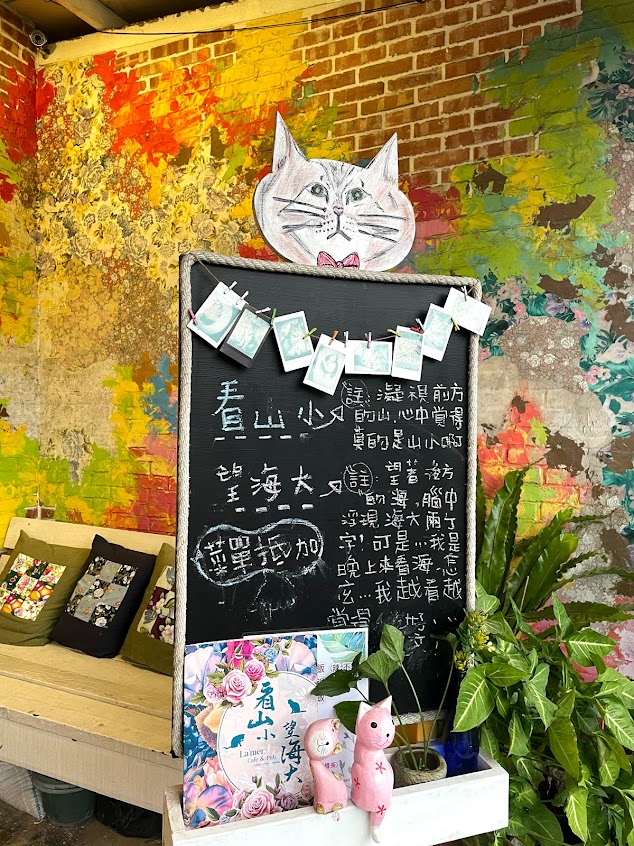 看山小
註:凝視前方
的山,心中覺得
真的是山小啊
望海大
註:望著後方
的海,腦中
浮現海大兩个
字!可是...我是
晚上來看海.怎
...我越看越
覺得
菜單抵加
看山小
望海大
La mer
Cafe & Pub